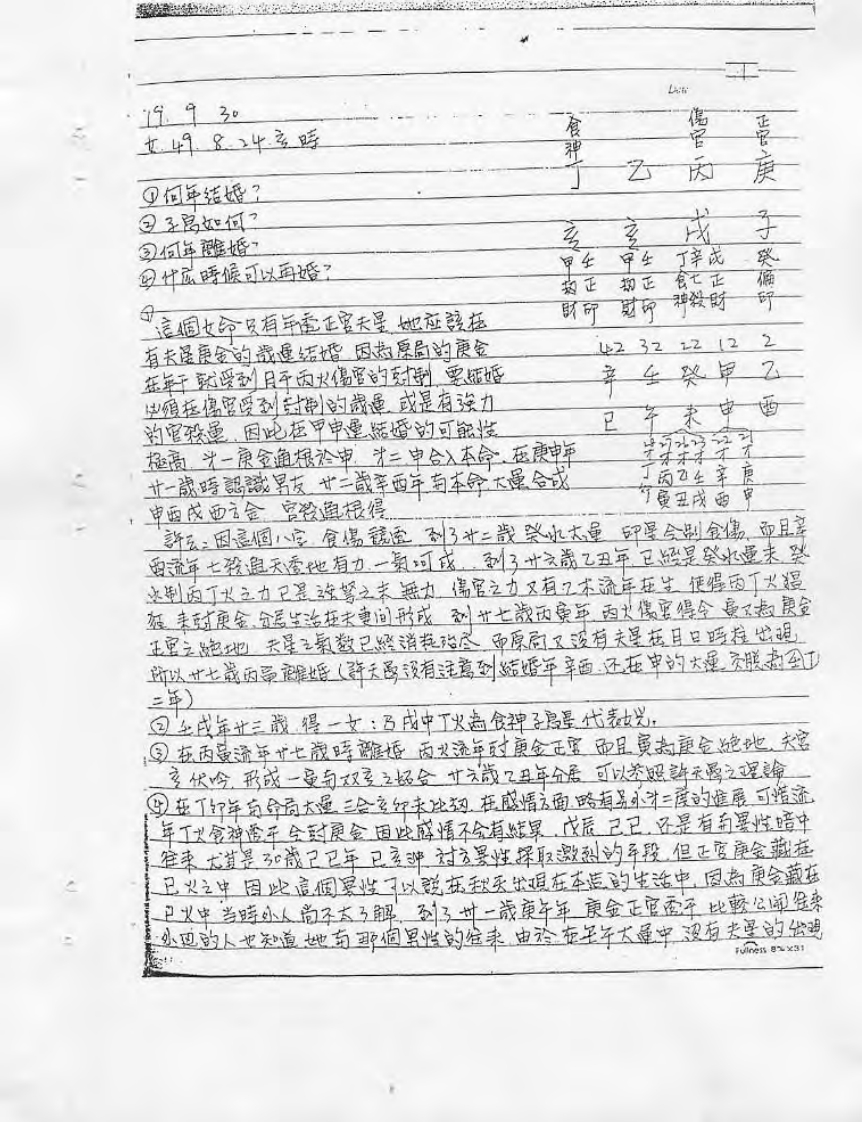 79. 9. 30
女. 49. 8. 24. 亥時
食神 傷官 正官
丁 乙 丙 庚
亥 亥 戌 子
甲壬 甲壬 丁辛戌 癸
劫正 劫正 食七正 偏
財印 財印 神殺財 印
①何年結婚?
②子息如何?
③何年離婚?
④什広時候可以再婚?
42 32 22 12 2
辛 壬 癸 甲 乙
巳 午 未 申 酉
丁丙乙壬辛庚
寅丑戌酉申
①這個女命只有年透正官夫星, 她应該在
有夫星庚金的歲運結婚, 因為原局的庚金
在年干就受到月干丙火傷官的尅制, 要結婚
必須在傷官受到尅制的歲運, 或是有強力
的官殺運, 因此在甲申運結婚的可能性
極高, 才一庚金通根於申, 才二申合入本命, 在庚申年
廿一歲時認識男友, 廿二歲辛酉年与本命大運合成
申酉戌西方金, 官殺通根得
許云:因這個八字, 食傷競透, 到了廿二歲癸水大運, 印星合制食傷, 而且辛
酉流年七殺通天透地有力, 一氣呵成.. 到了廿六歲乙丑年, 已經是癸水運末, 癸
水制丙丁火之力已是強弩之末, 無力, 傷官之力又有乙木流年在生, 使得丙丁火猖
狂, 來尅庚金, 分居生活在夫妻間形成, 到廿七歲丙寅年, 丙火傷官得令, 寅又為庚金
正官之絕地, 夫星之氣数已經消耗殆尽, 而原局又沒有夫星在月日時柱出現
所以廿七歲丙寅離婚(許天
二年)
②壬戌年廿三歲, 得一女:乃戌中丁火為食神子息星, 代表女児.
③在丙寅流年廿七歲時離婚, 丙火流年尅庚金正官, 而且寅為庚金絕地, 夫宮
亥伏吟, 形成一寅与双亥之妬合, 廿六歲乙丑年分居, 可以參照許天
④在丁卯年与命局大運三合亥卯未比劫, 在感情方面, 略有另外才二度的進展, 可惜流
年丁火食神透干合尅庚金, 因此感情不会有結果, 戊辰, 己巳, 还是有和異性暗中
往來, 尤其是30歲己巳年, 巳亥沖, 対方異性採取激烈的手段, 但正官庚金藏在
巳火之中, 因此這個異性可以說在秋天出現在本造的生活中, 因為庚金藏在
巳火中, 当時外人尚不太了解, 到了卅一歲庚午年, 庚金正官透干, 比較公開往來
外面的人也知道她与那個異性的往來, 由於在壬午大運中, 沒有夫星的出現
Fullness 8¾×31